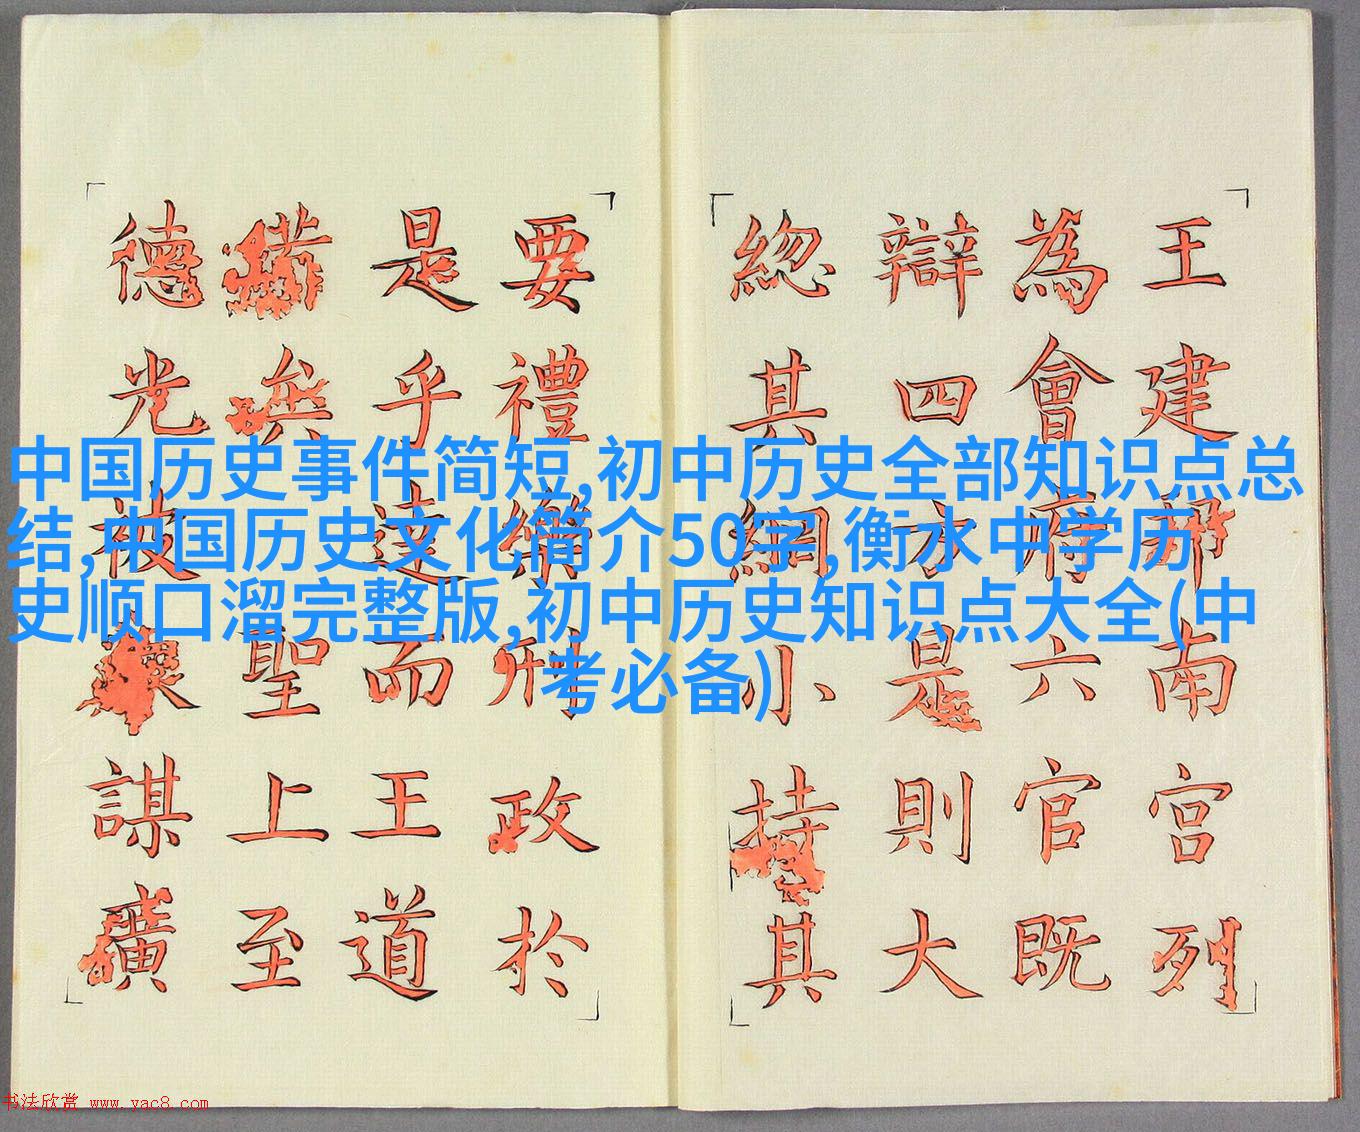 中国历史事件简短,初中历史全部知识点总
结,中国历史文化简介50字,衡水中学历
史顺口溜完整版,初中历史知识点大全(中
考必备)
王建南宮列
為會府六官既
辯四方是則大
總其綱小持其
要禮樂刑政於
是乎達而王道
備矣聖上至
德光被謀
书法欣赏 www.yac8.com